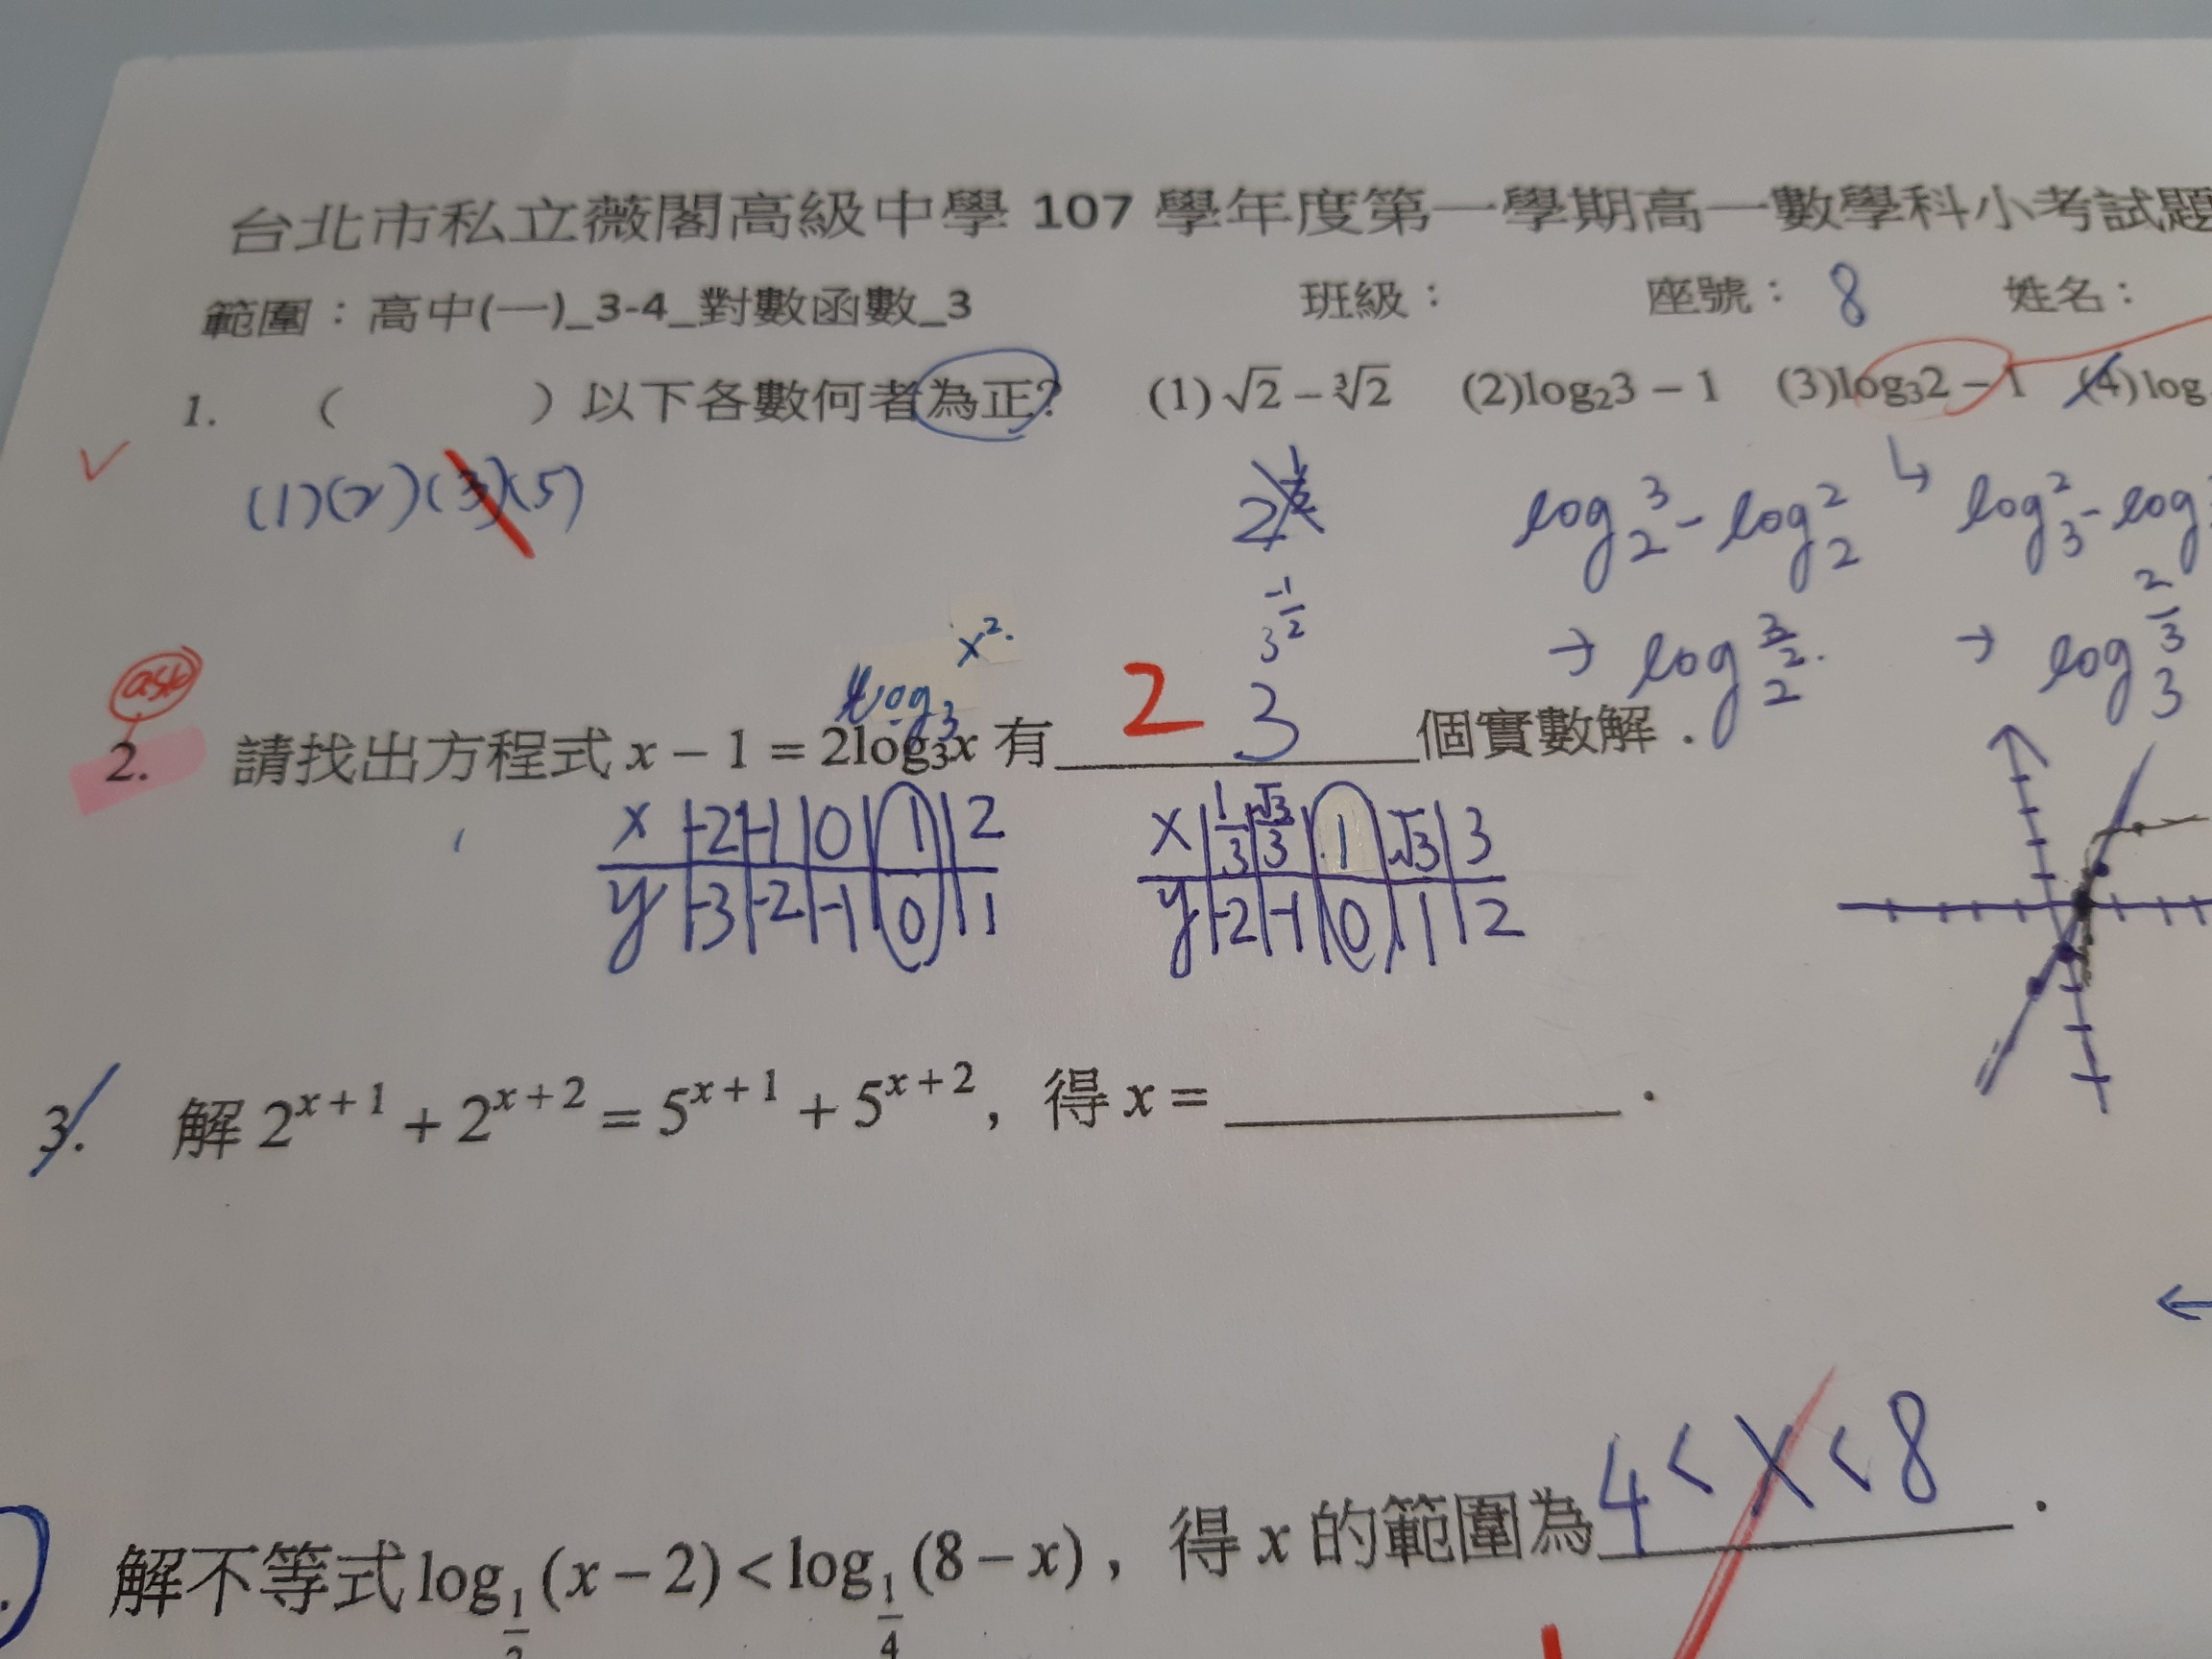 台北市私立薇閣高級中學 107 學年度第一學期高一數學科小考試題
範圍：高中(一)_3-4_對數函數_3 班級： 座號：8 姓名：
1. ( ) 以下各數何者為正? (1)√2 − ³√2 (2)log₂3 − 1 (3)log₃2 − 1 (4)log
(1)(2)(3)(5)
2^½ log₂3 − log₂2 ↳ log₃2 − log
3^(-1/2) → log₂ 3/2 . → log₃ 2/3
ask
log₃ x².
2. 請找出方程式 x − 1 = 2log₃x 有 2 3 個實數解．
x -2 -1 0 1 2
y -3 -2 -1 0 1
x 1/3 √3/3 1 √3 3
y -2 -1 0 1 2
3. 解 2^(x+1) + 2^(x+2) = 5^(x+1) + 5^(x+2)，得 x = ．
解不等式 log_(1/2)(x − 2) < log_(1/4)(8 − x)，得 x 的範圍為 4 < x < 8 ．